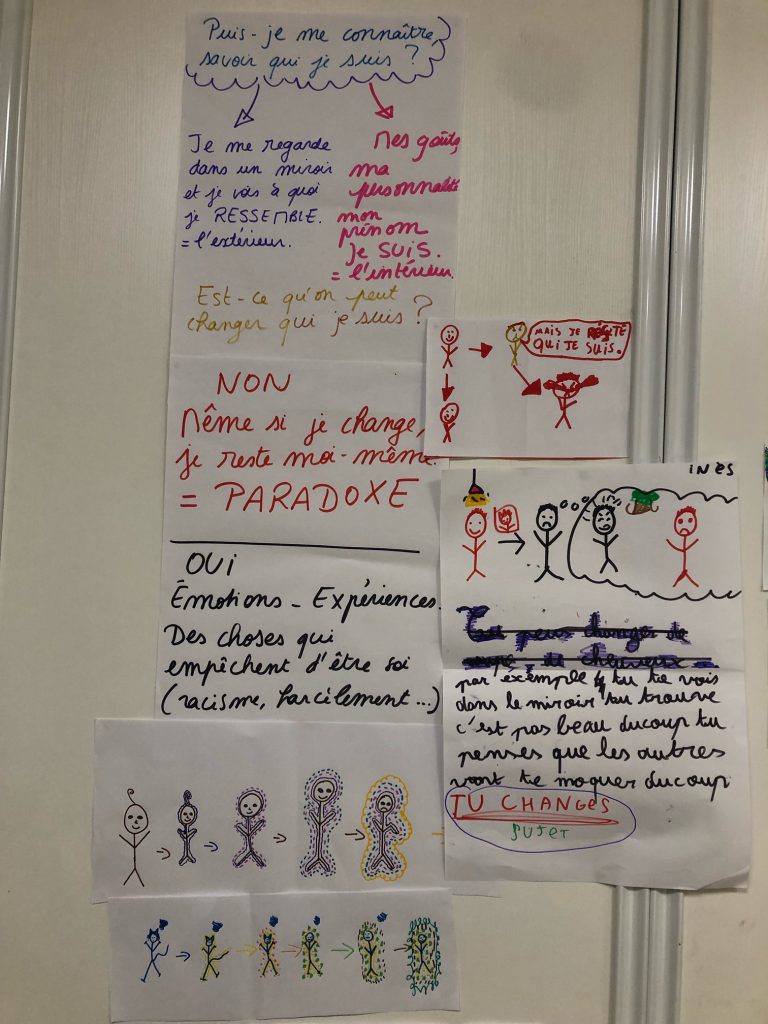 Puis-je me connaître,
savoir qui je suis ?
Je me regarde
dans un miroir
et je vois à quoi
je RESSEMBLE.
= l'extérieur.
Mes goûts,
ma
personnalité
mon
prénom
je SUIS.
= l'intérieur.
Est-ce qu'on peut
changer qui je suis ?
NON
Même si je change,
je reste moi-même.
= PARADOXE
MAIS JE RESTE
QUI JE SUIS.
OUI
Émotions - Expériences.
Des choses qui
empêchent d'être soi
(racisme, harcèlement...)
INES
Tu peux changer de
coupe de cheveux
par éxemple tu te vois
dans le miroir tu trouve
c'est pas beau ducoup tu
penses que les autres
vont te moquer ducoup
TU CHANGES
SUJET